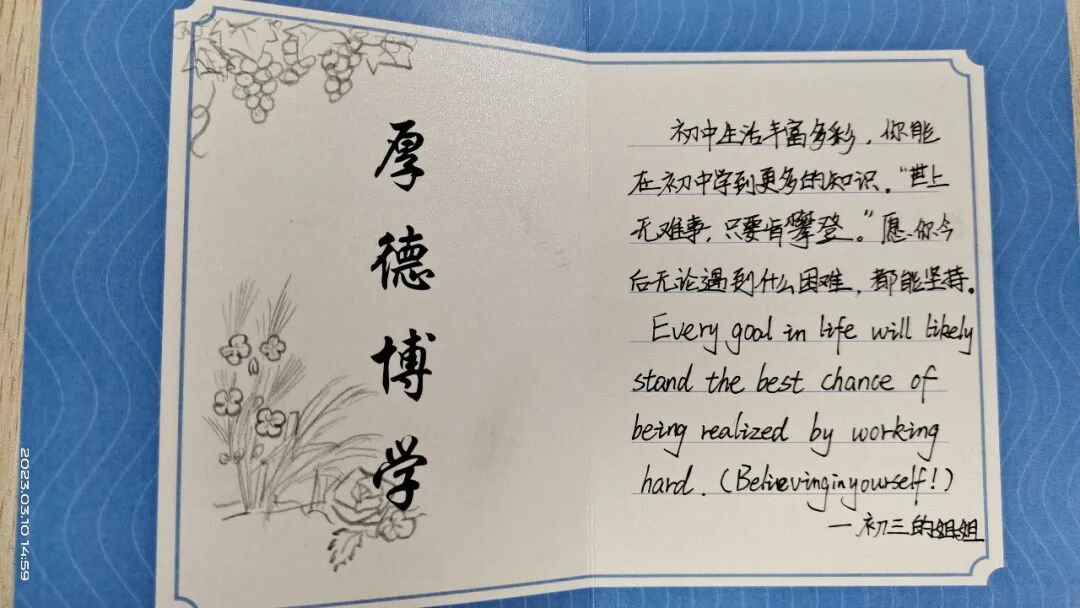 厚德博学
初中生活丰富多彩，你能
在初中学到更多的知识。“世上
无难事，只要肯攀登。”愿你今
后无论遇到什么困难，都能坚持。
Every goal in life will likely
stand the best chance of
being realized by working
hard. (Believing in yourself!)
—初三的姐姐
2023.03.10 14:59